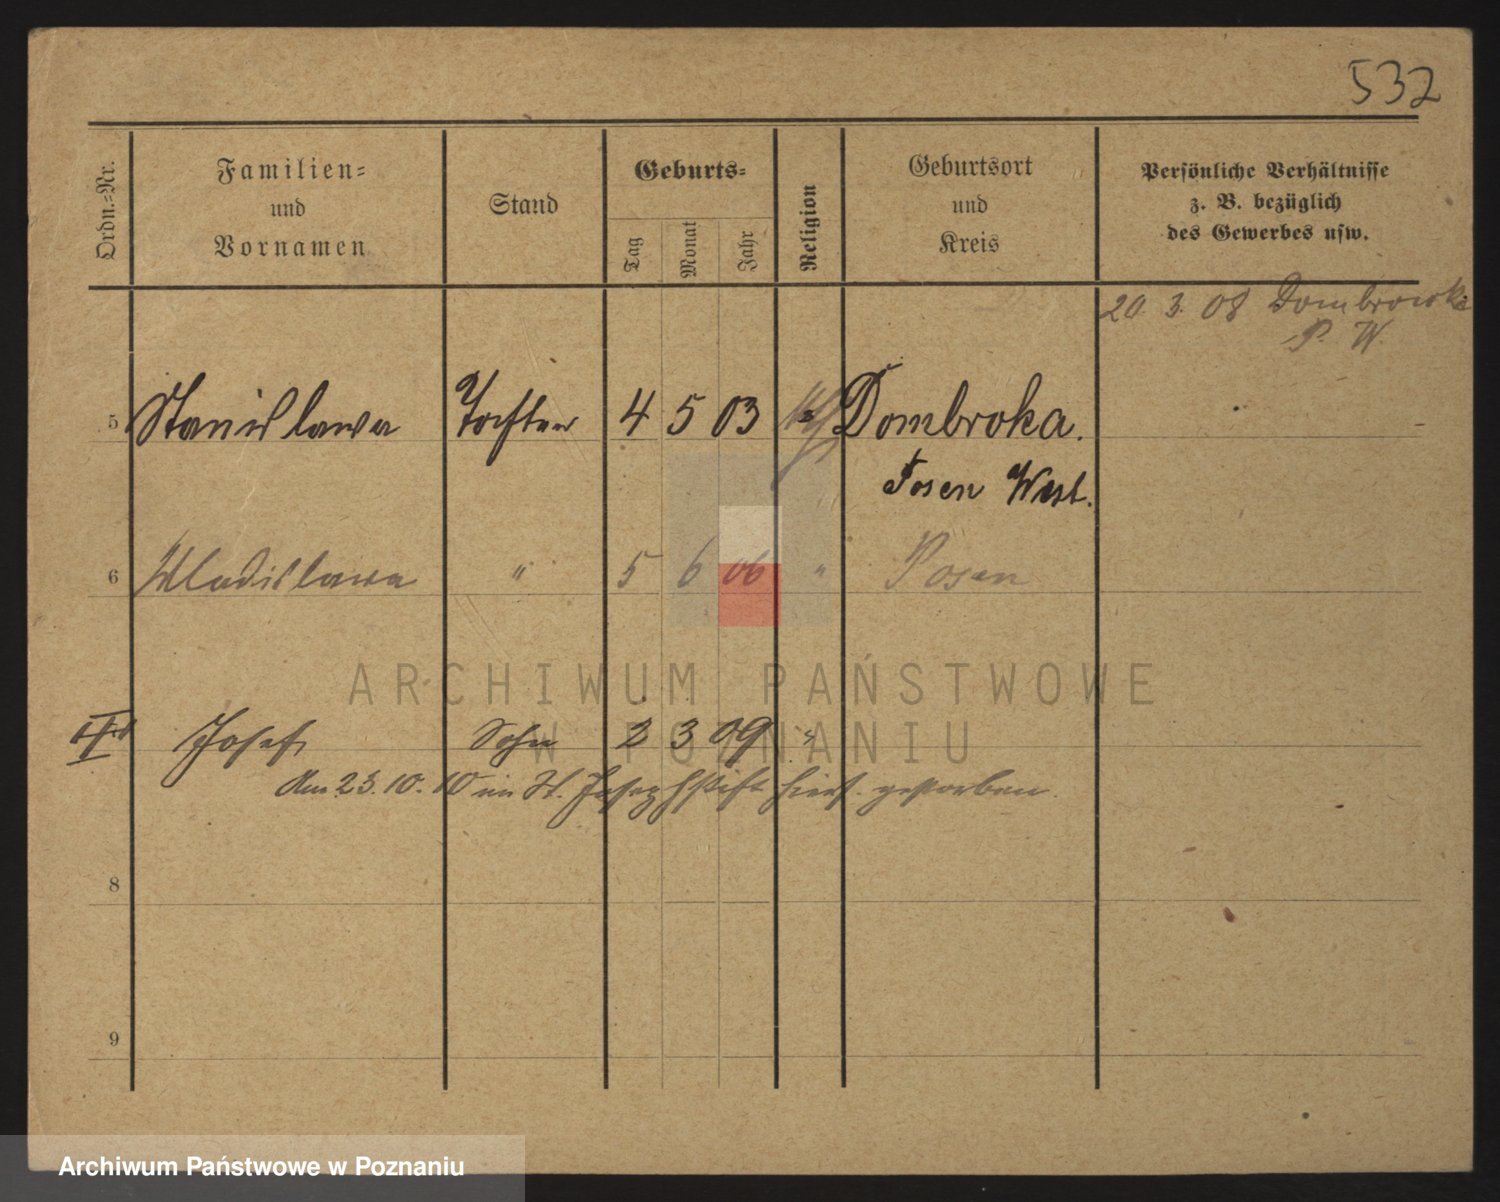 532
Ordn.-Nr.
Familien-
und
Vornamen
Stand
Geburts-
Tag
Monat
Jahr
Religion
Geburtsort
und
Kreis
Persönliche Verhältnisse
z. B. bezüglich
des Gewerbes usw.
20. 3. 08 Dombrowka
P. W.
5 Stanislawa Tochter 4 5 03 Dombroka.
Posen West.
6 Wladislawa " 5 6 06 " Posen
ARCHIWUM PAŃSTWOWE
W POZNANIU
Josef Sohn 2 3 09 "
Am 23. 10. 10 im St. Josephstift hies. gestorben.
8
9
Archiwum Państwowe w Poznaniu